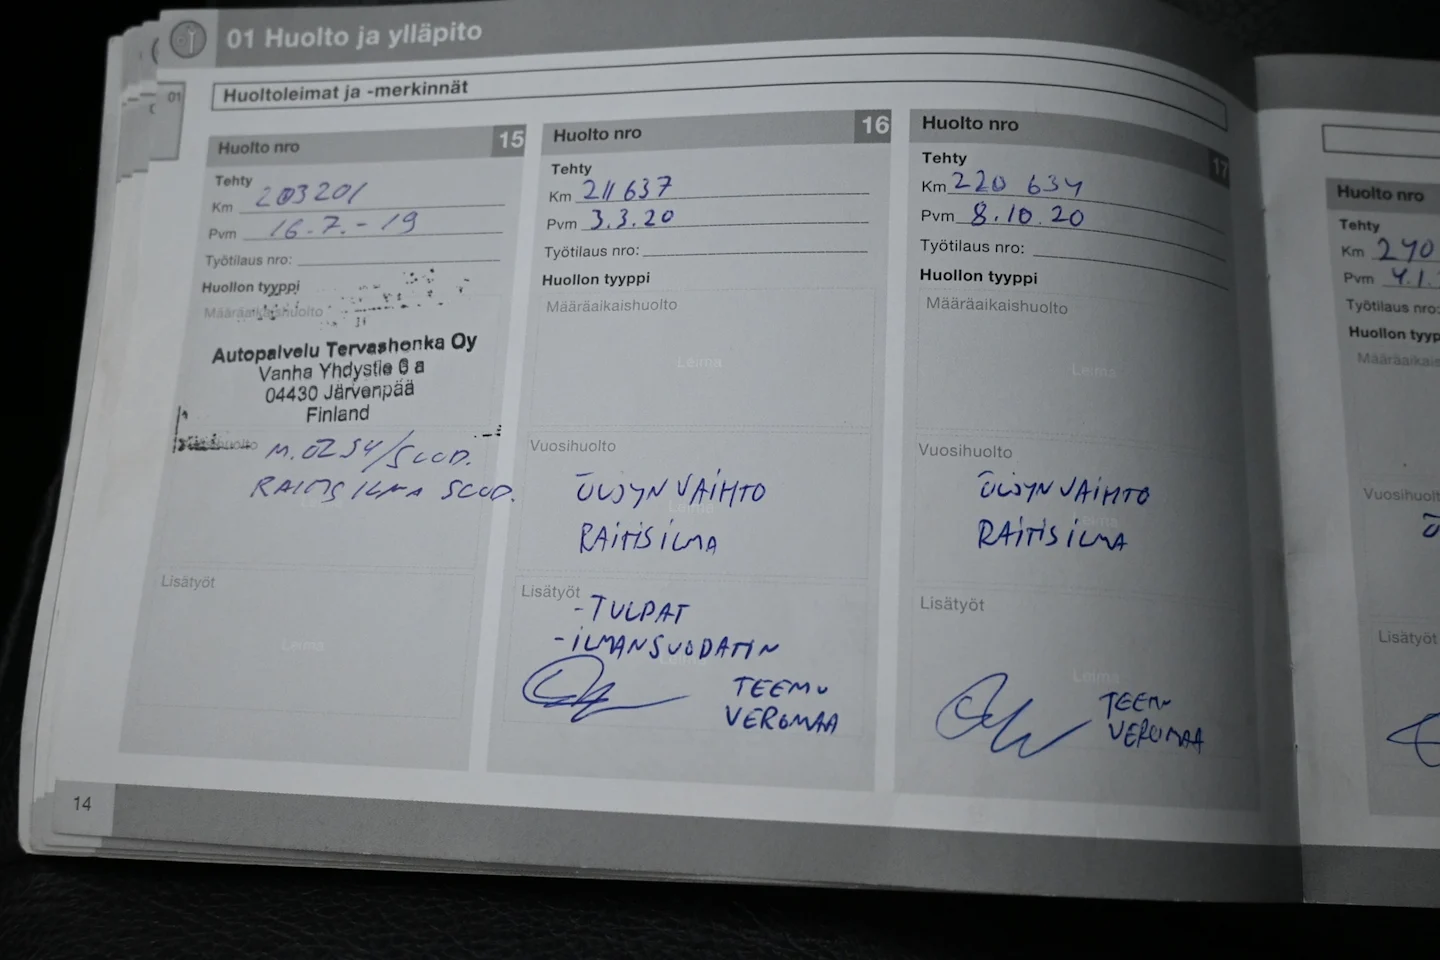 01 Huolto ja ylläpito
01
Huoltoleimat ja -merkinnät
Huolto nro 15
Tehty
Km 203201
Pvm 16.7.-19
Työtilaus nro:
Huollon tyyppi
Määräaikaishuolto
Autopalvelu Tervashonka Oy
Vanha Yhdystie 6 a
04430 Järvenpää
Finland
M. ÖZ S4/SUOD.
RAITIS ILMA SUOD.
Leima
Lisätyöt
Leima
Huolto nro 16
Tehty
Km 211 637
Pvm 3.3.20
Työtilaus nro:
Huollon tyyppi
Määräaikaishuolto
Leima
Vuosihuolto
ÖLJYN VAIHTO
Leima
RAITISILMA
Lisätyöt
- TULPAT
- ILMANSUODATIN
Leima
TEEMU
VEROMAA
Huolto nro 17
Tehty
Km 220 634
Pvm 8.10.20
Työtilaus nro:
Huollon tyyppi
Määräaikaishuolto
Leima
Vuosihuolto
ÖLJYN VAIHTO
Leima
RAITISILMA
Lisätyöt
Leima
TEEMU
VEROMAA
14
Huolto nro
Tehty
Km 240
Pvm 4.1.
Työtilaus nro:
Huollon tyyp
Määräaikais
Vuosihuolt
Ö
Lisätyöt